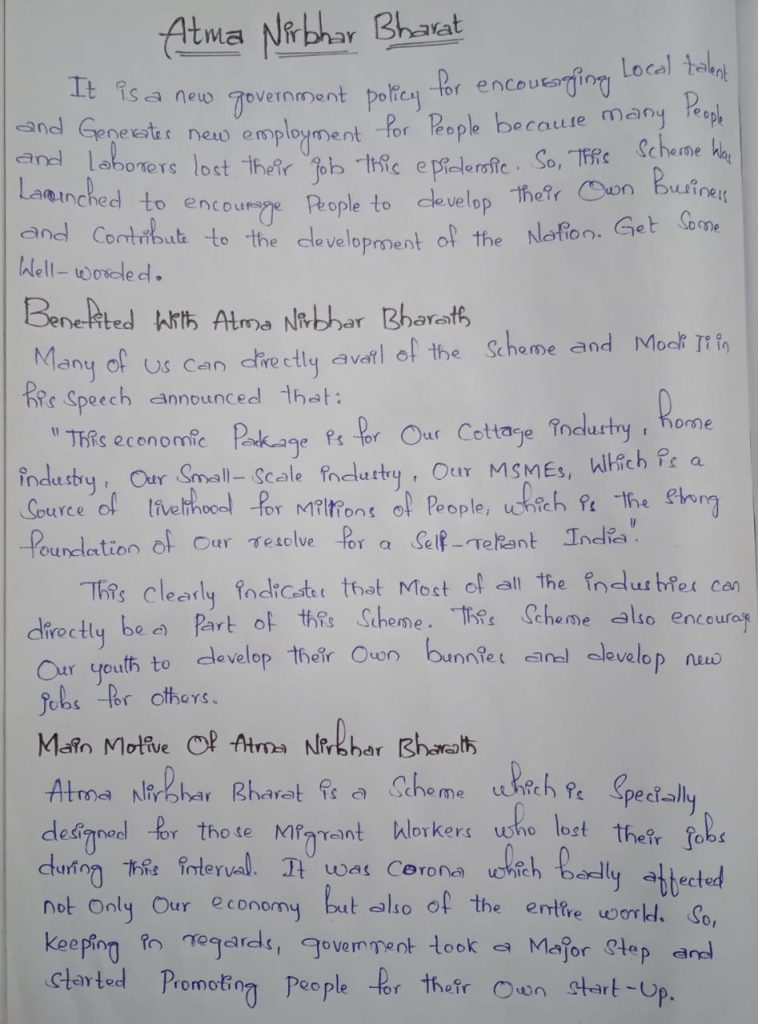 Atma Nirbhar Bharat
It is a new government policy for encouraging Local talent
and Generates new employment for People because many People
and laborers lost their job this epidemic. So, This Scheme was
Launched to encourage People to develop their Own Business
and Contribute to the development of the Nation. Get Some
Well-worded.
Benefited With Atma Nirbhar Bharath
Many of us can directly avail of the Scheme and Modi Ji in
his Speech announced that:
"This economic Package is for Our Cottage industry, home
industry, Our Small-Scale industry, Our MSMEs, Which is a
Source of livelihood for Millions of People, which is the Strong
foundation of Our resolve for a Self-reliant India".
This Clearly indicates that Most of all the industries can
directly be a Part of this Scheme. This Scheme also encourage
Our youth to develop their Own bunnies and develop new
jobs for others.
Main Motive Of Atma Nirbhar Bharath
Atma Nirbhar Bharat is a Scheme which is Specially
designed for those Migrant Workers who lost their jobs
during this interval. It was Corona which badly affected
not Only Our economy but also of the entire world. So,
Keeping in regards, government took a Major Step and
Started Promoting People for their Own Start-Up.